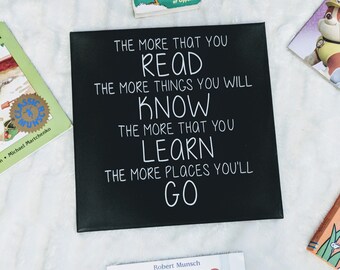 THE MORE THAT YOU
READ
THE MORE THINGS YOU WILL
KNOW
THE MORE THAT YOU
LEARN
THE MORE PLACES YOU'LL
GO
CLASSIC
MUNSCH
Michael Martchenko
Robert Munsch